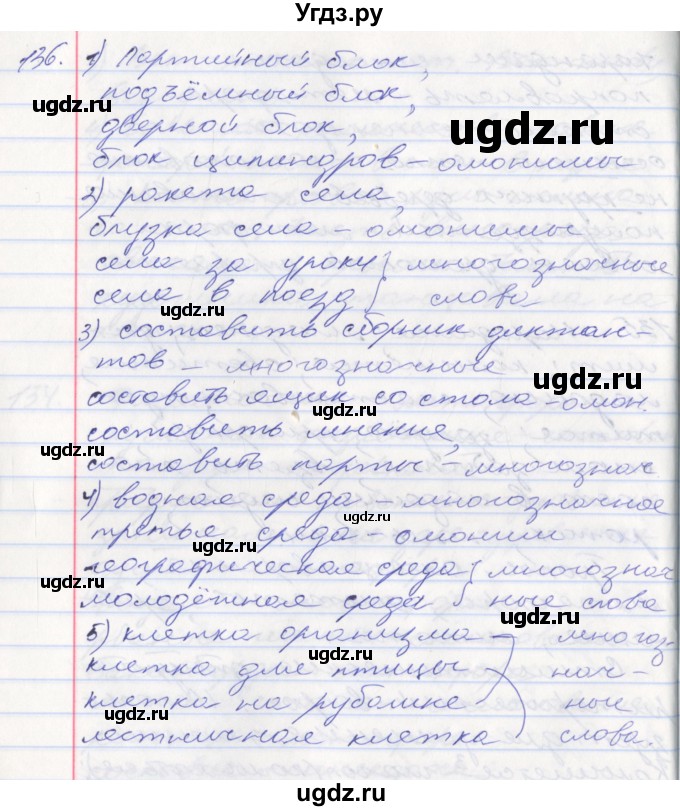 Угдз.ру
136. 1) Партийный блок,
подъёмный блок,
дверной блок,
блок цилиндров – омонимы
2) ракета села,
блузка села – омонимы
села за уроки } многозначные
села в поезд } слова
3) составить сборник диктан-
тов – многозначные
составить ящик со стола – омон.
составить мнение,
составить парты – многознач.
4) водная среда – многозначное
третья среда – омоним
географическая среда } многознач
молодёжная среда } ные слова
5) клетка организма – многоз-
клетка для птицы нач-
клетка на рубашке ные
лестничная клетка слова.
ugdz.ru
ugdz.ru
ugdz.ru
ugdz.ru
ugdz.ru
ugdz.ru
ugdz.ru
ugdz.ru
ugdz.ru
ugdz.ru
ugdz.ru
ugdz.ru
ugdz.ru